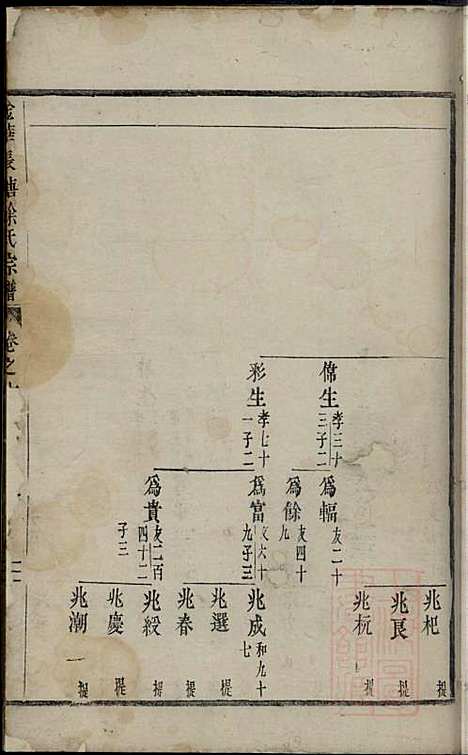 兆杞 提
兆艮 提
兆杬 提
偉生 孝三十三 子二
為輻 友二十
為餘 友四十九
彩生 孝七十一 子二
為富 友六十九 子三
兆成 和九十七
兆選 提
兆春 提
為貴 友二百四十二 子三
兆綬 提
兆慶 提
兆潮 一 提
徐氏宗譜 卷之